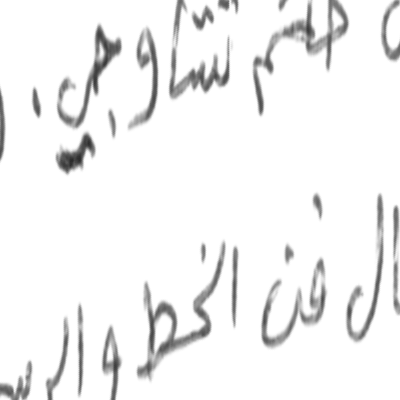 حكم تشاو جي .
ال فن الخط والرس